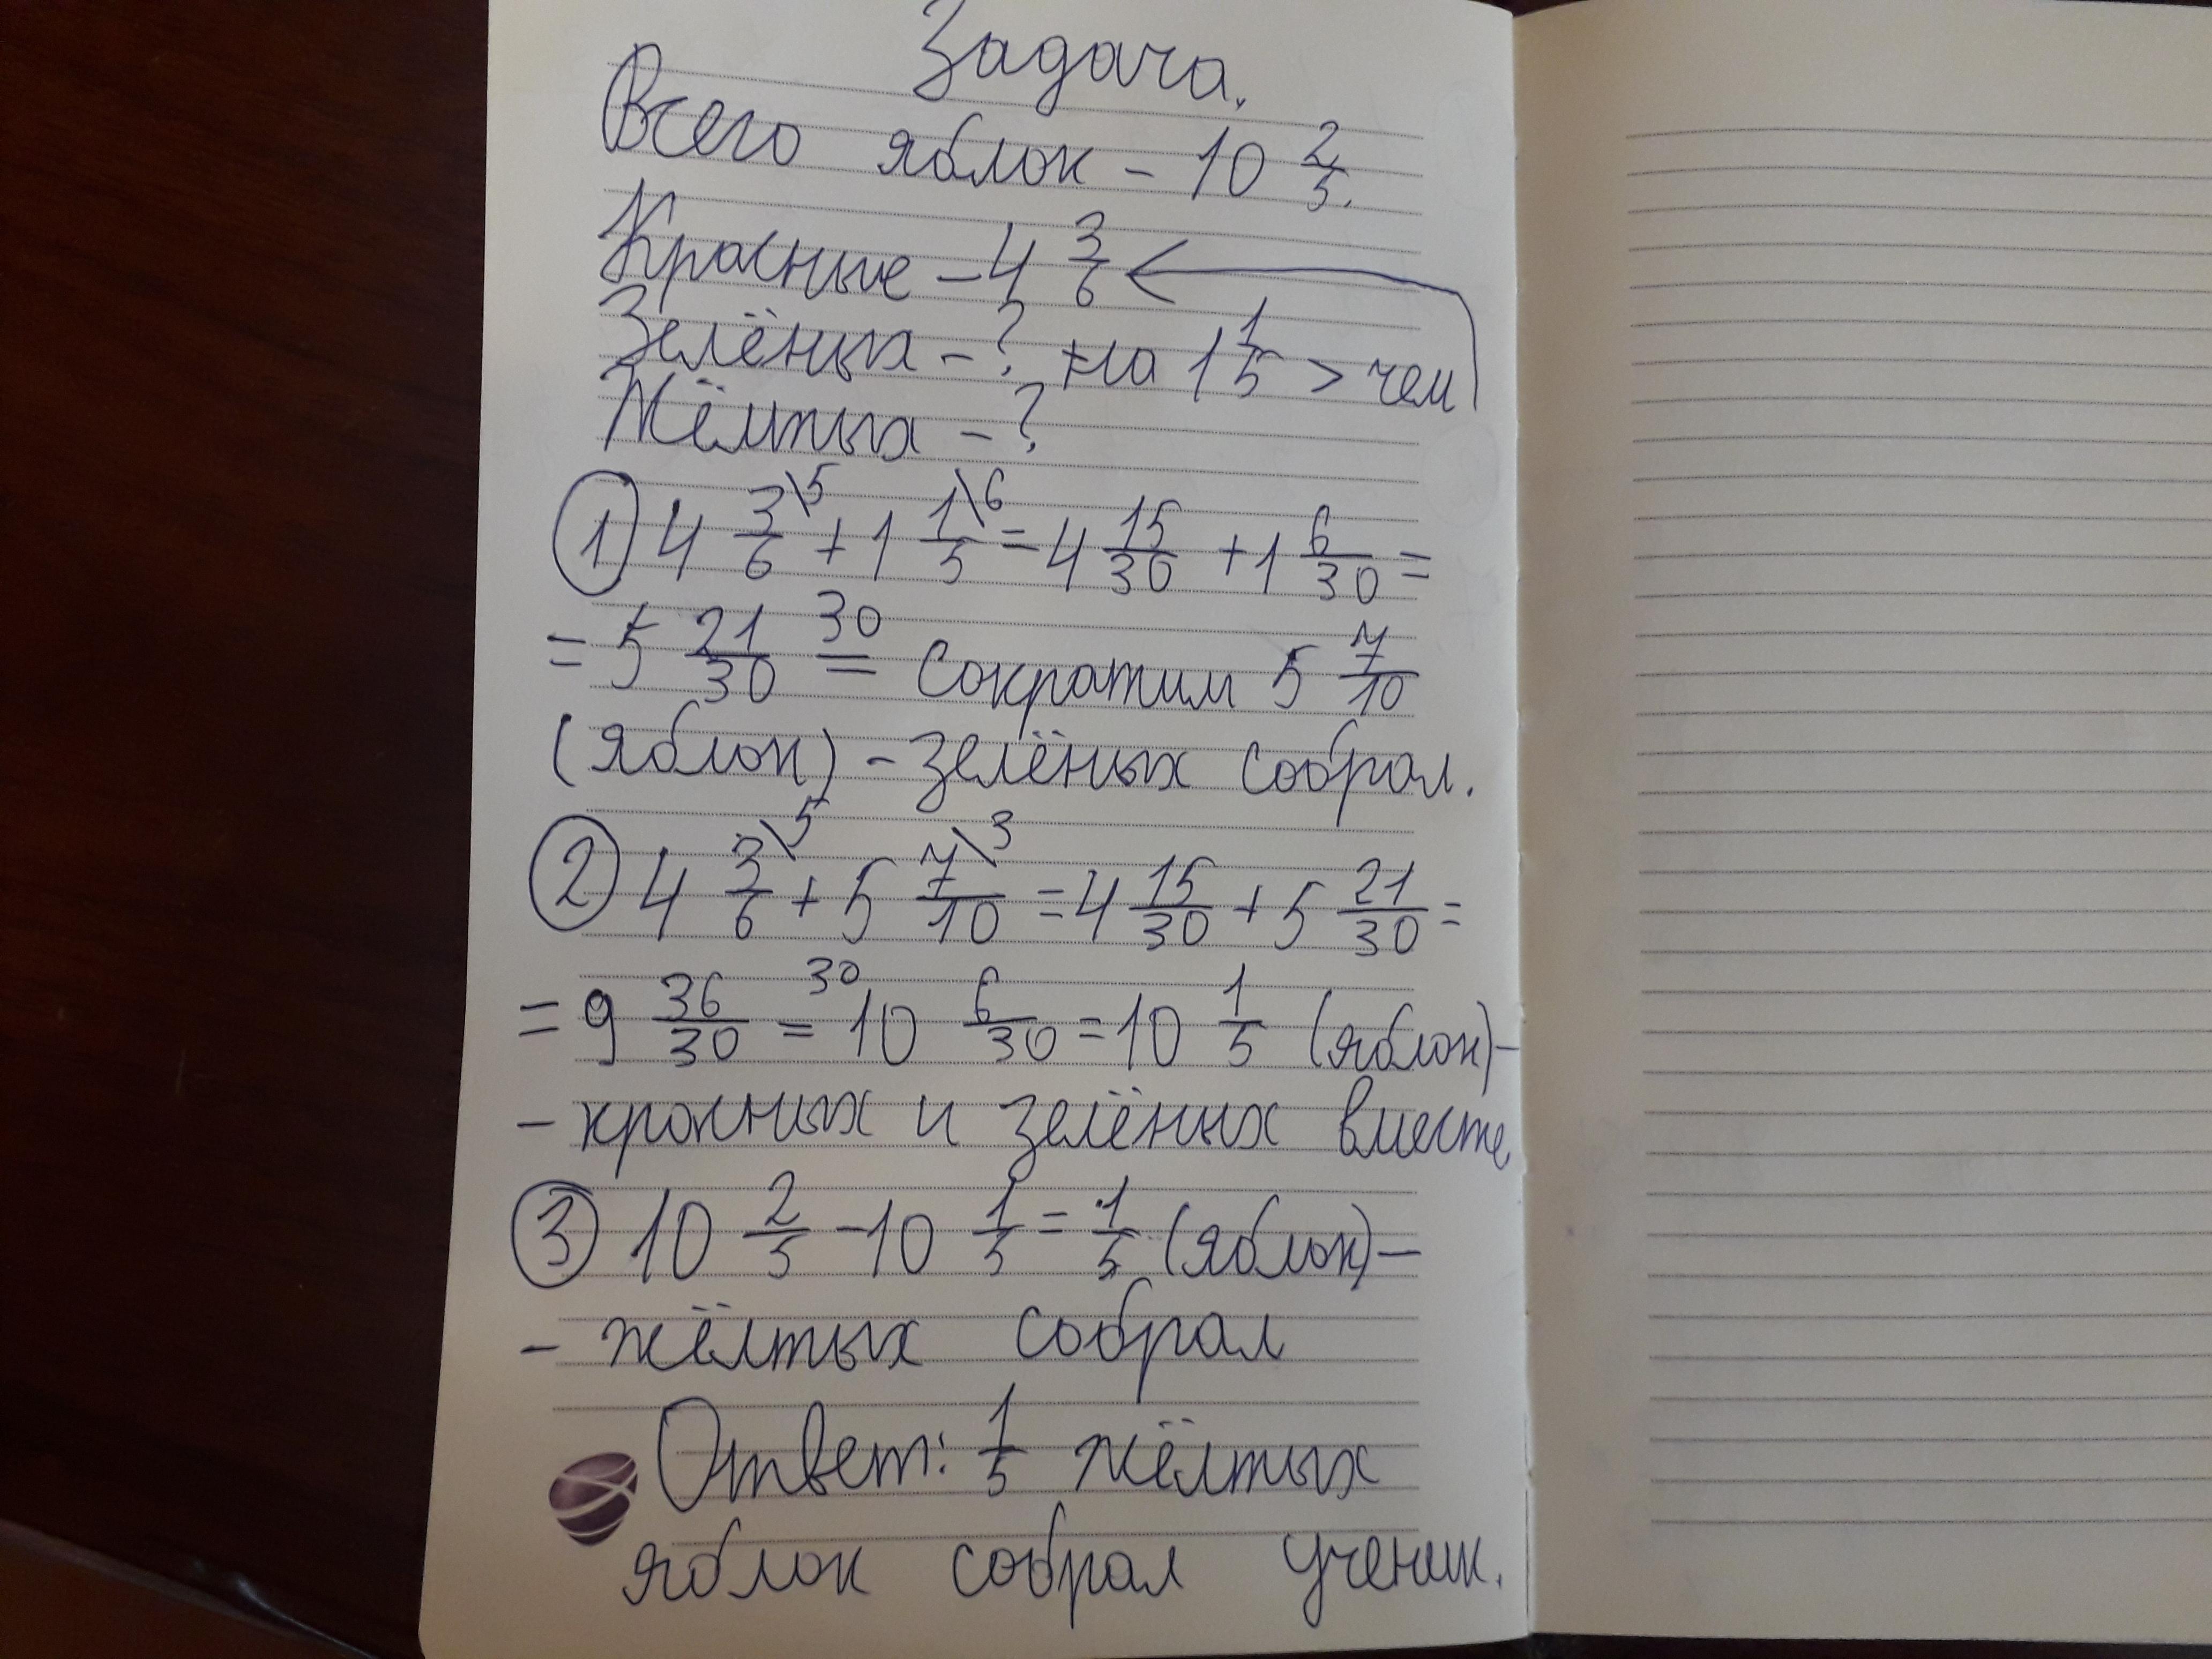 Задача.
Всего яблок - 10 2/5.
Красные - 4 3/6
Зелёных - ? на 1 1/5 > чем
Жёлтых - ?
1) 4 3/6\5 + 1 1/5\6 = 4 15/30 + 1 6/30 =
= 5 21/30 30= сократим 5 7/10
(яблок) - зелёных собрал.
2 4 3/6\5 + 5 7/10\3 = 4 15/30 + 5 21/30 =
= 9 36/30 30= 10 6/30 = 10 1/5 (яблок) -
- красных и зелёных вместе.
3 10 2/5 - 10 1/5 = 1/5 (яблок) -
- жёлтых собрал
Ответ: 1/5 жёлтых
яблок собрал ученик.